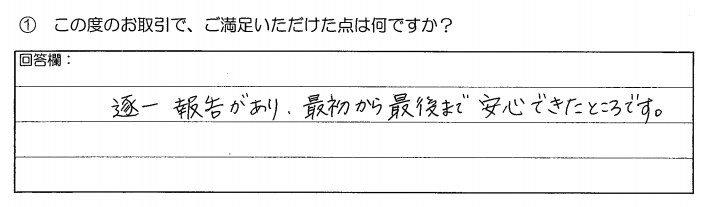 ① この度のお取引で、ご満足いただけた点は何ですか？
回答欄：
逐一 報告があり、最初から最後まで安心できたところです。